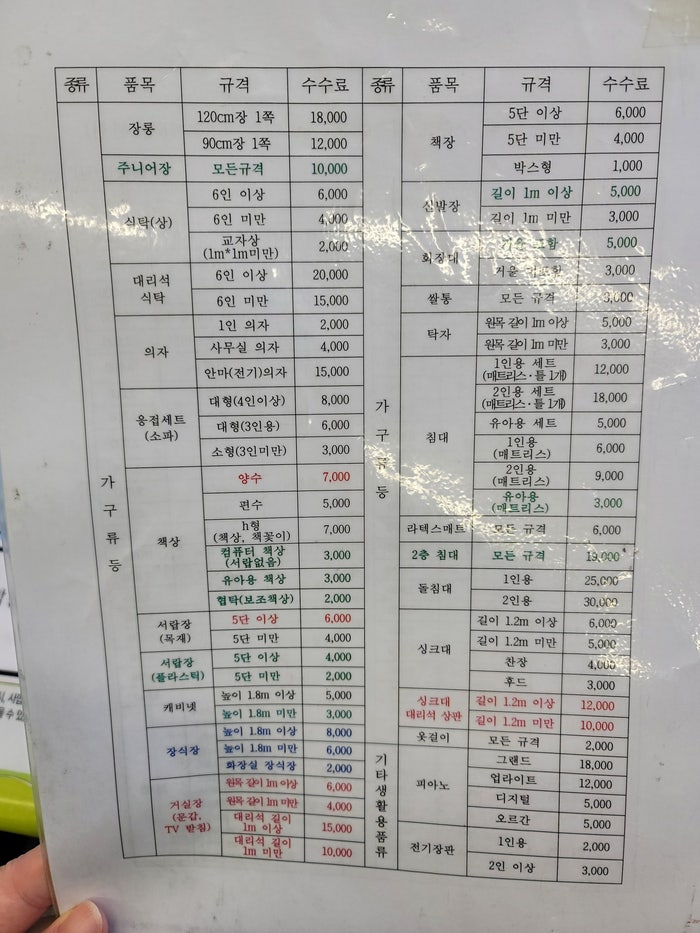 종류 품목 규격 수수료
가구류 등
장롱 120cm장 1쪽 18,000
90cm장 1쪽 12,000
주니어장 모든규격 10,000
식탁(상) 6인 이상 6,000
6인 미만 4,000
교자상 (1m*1m미만) 2,000
대리석 식탁 6인 이상 20,000
6인 미만 15,000
의자 1인 의자 2,000
사무실 의자 4,000
안마(전기)의자 15,000
응접세트 (소파) 대형(4인이상) 8,000
대형(3인용) 6,000
소형(3인미만) 3,000
책상 양수 7,000
편수 5,000
h형 (책상, 책꽂이) 7,000
컴퓨터 책상 (서랍없음) 3,000
유아용 책상 3,000
협탁(보조책상) 2,000
서랍장 (목재) 5단 이상 6,000
5단 미만 4,000
서랍장 (플라스틱) 5단 이상 4,000
5단 미만 2,000
캐비넷 높이 1.8m 이상 5,000
높이 1.8m 미만 3,000
장식장 높이 1.8m 이상 8,000
높이 1.8m 미만 6,000
화장실 장식장 2,000
거실장 (문갑, TV 받침) 원목 길이 1m 이상 6,000
원목 길이 1m 미만 4,000
대리석 길이 1m 이상 15,000
대리석 길이 1m 미만 10,000
종류 품목 규격 수수료
가구류 등
책장 5단 이상 6,000
5단 미만 4,000
박스형 1,000
신발장 길이 1m 이상 5,000
길이 1m 미만 3,000
화장대 거울 포함 5,000
거울 미포함 3,000
쌀통 모든 규격 3,000
탁자 원목 길이 1m 이상 5,000
원목 길이 1m 미만 3,000
침대 1인용 세트 (매트리스·틀 1개) 12,000
2인용 세트 (매트리스·틀 1개) 18,000
유아용 세트 5,000
1인용 (매트리스) 6,000
2인용 (매트리스) 9,000
유아용 (매트리스) 3,000
라텍스매트 모든 규격 6,000
2층 침대 모든 규격 19,000
돌침대 1인용 25,000
2인용 30,000
싱크대 길이 1.2m 이상 6,000
길이 1.2m 미만 5,000
찬장 4,000
후드 3,000
싱크대 대리석 상판 길이 1.2m 이상 12,000
길이 1.2m 미만 10,000
옷걸이 모든 규격 2,000
기타생활용품류
피아노 그랜드 18,000
업라이트 12,000
디지털 5,000
오르간 5,000
전기장판 1인용 2,000
2인 이상 3,000